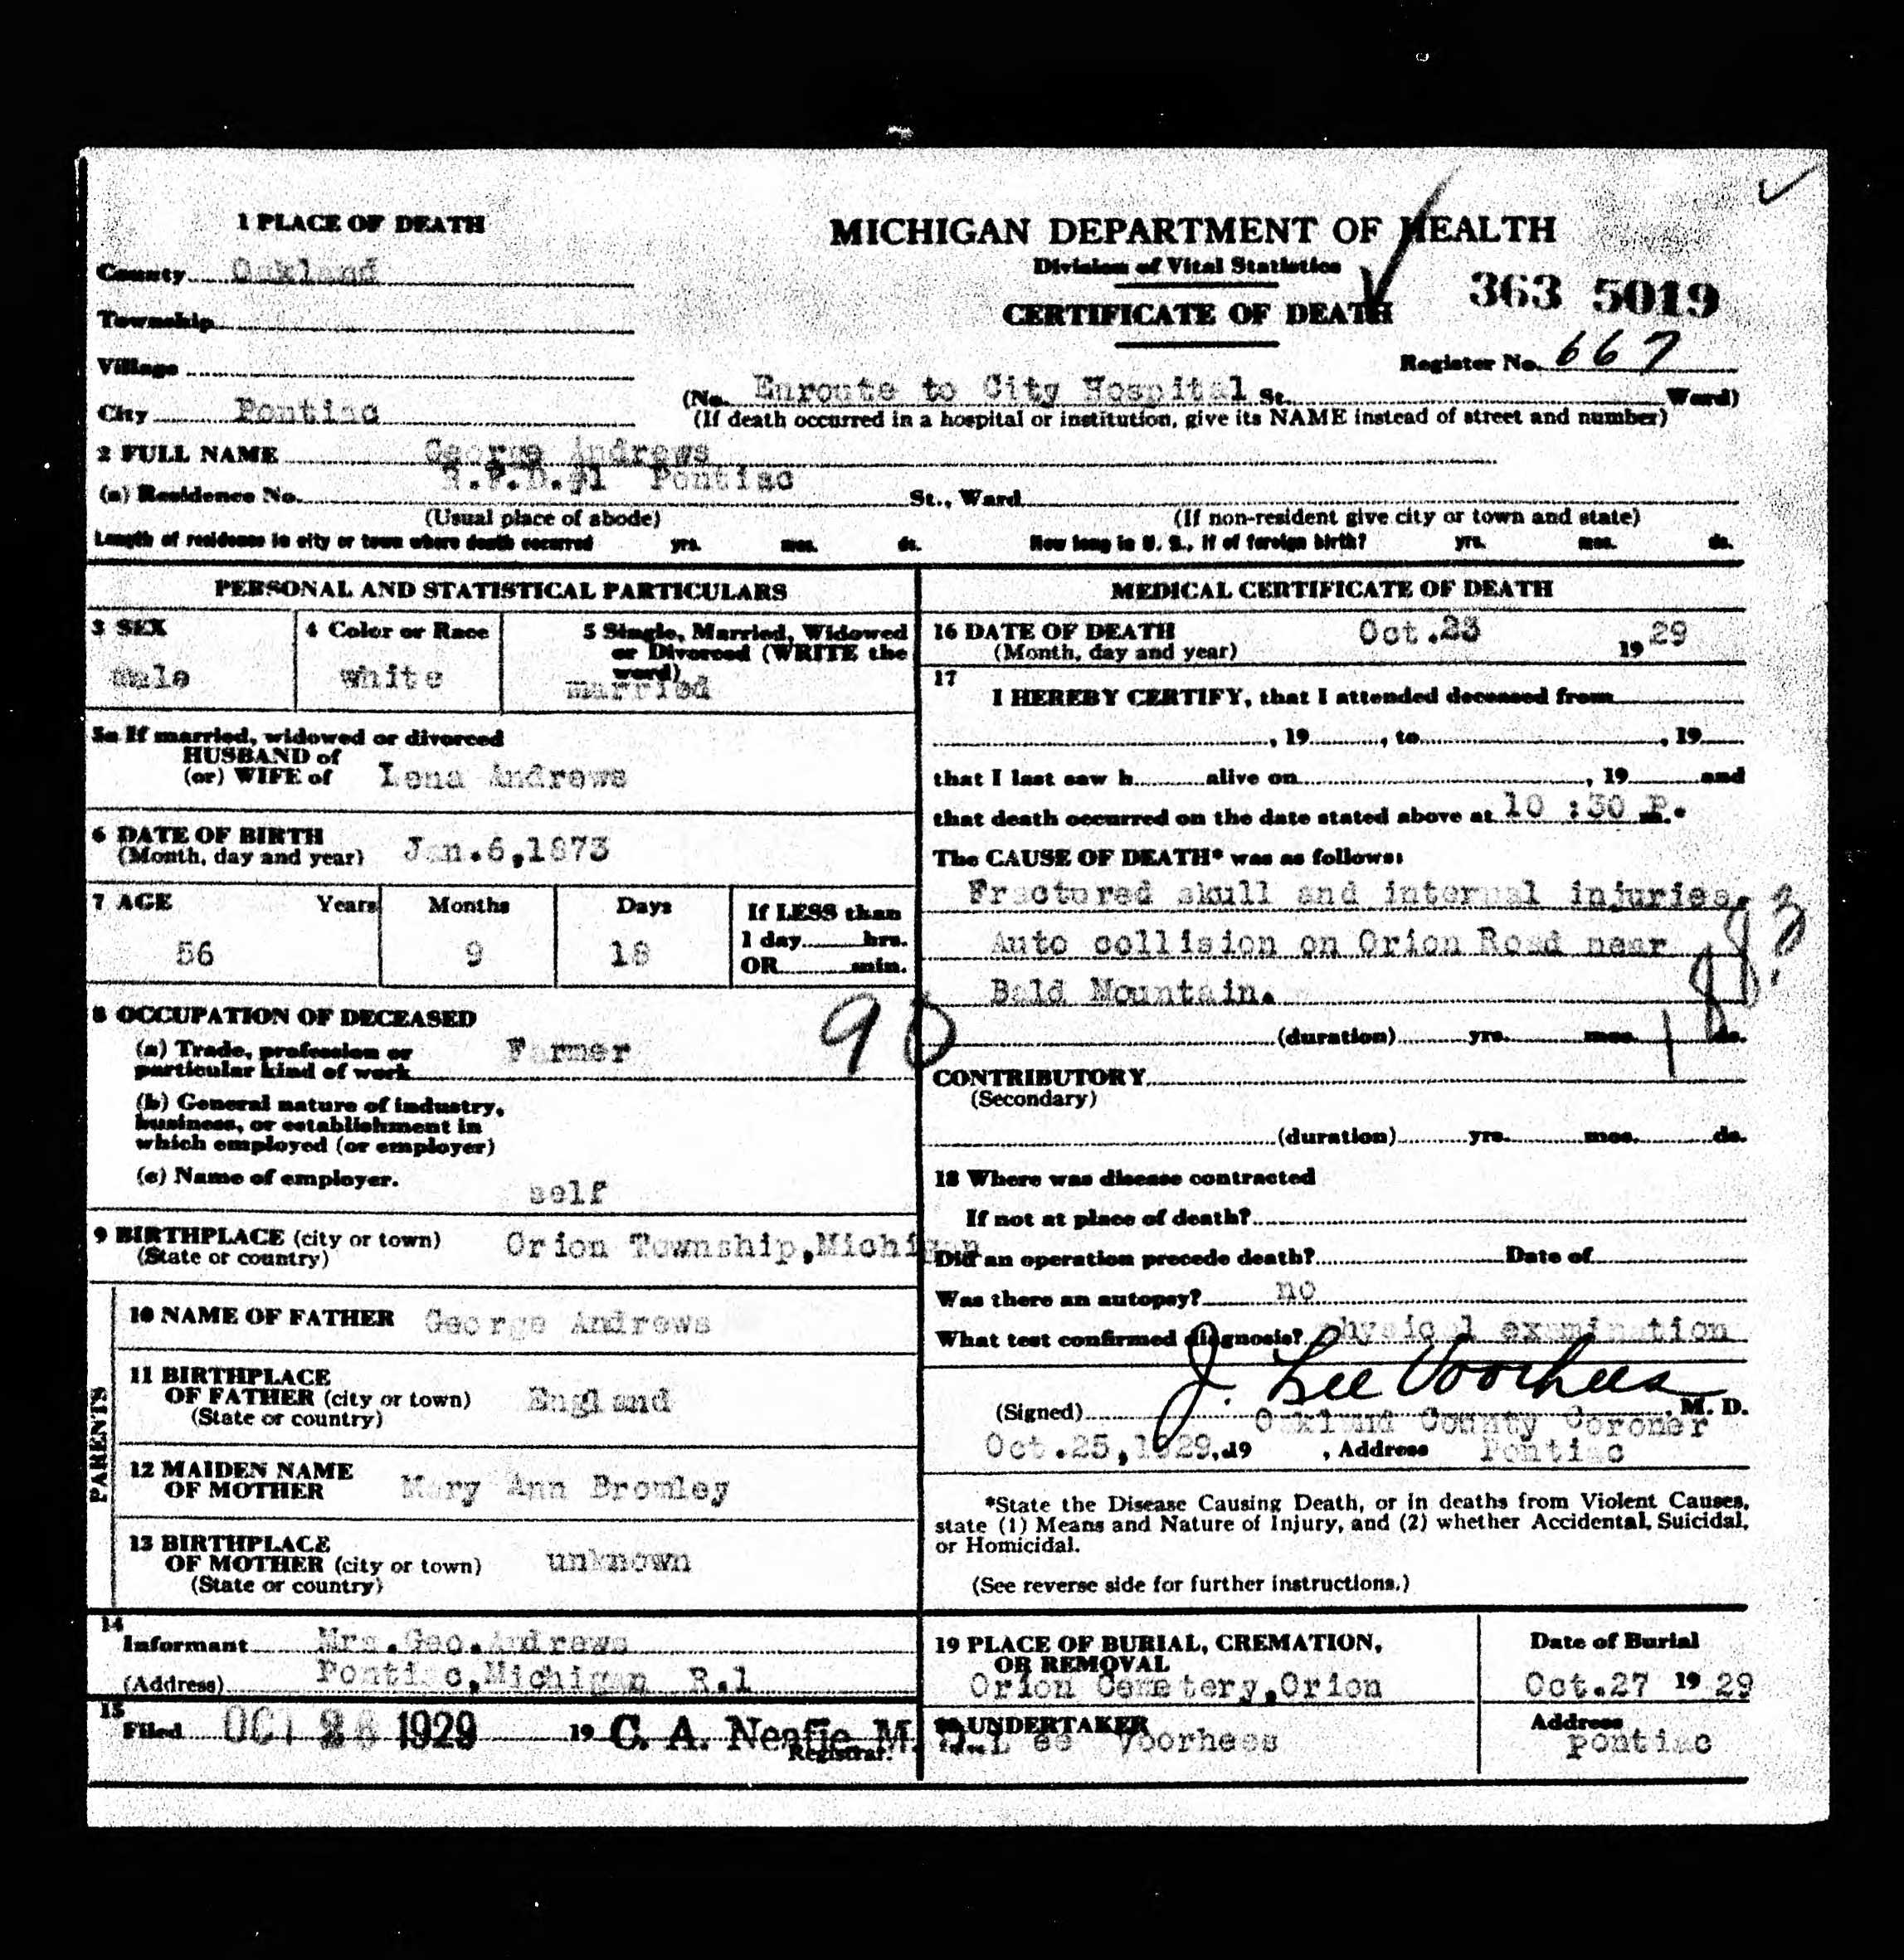 1 PLACE OF DEATH
MICHIGAN DEPARTMENT OF HEALTH
Division of Vital Statistics
County Oakland
363 5019
CERTIFICATE OF DEATH
Township
Register No. 667
Village
(No. Enroute to City Hospital St. Ward)
City Pontiac
(If death occurred in a hospital or institution, give its NAME instead of street and number)
2 FULL NAME George Andrews
(a) Residence No. R.F.D.#1 Pontiac St., Ward
(Usual place of abode) (If non-resident give city or town and state)
Length of residence in city or town where death occurred yrs. mos. ds. How long in U. S., if of foreign birth? yrs. mos. ds.
PERSONAL AND STATISTICAL PARTICULARS
3 SEX
male
4 Color or Race
white
5 Single, Married, Widowed
or Divorced (WRITE the
word)
married
5a If married, widowed or divorced
HUSBAND of
(or) WIFE of Lena Andrews
6 DATE OF BIRTH
(Month, day and year) Jan.6,1873
7 AGE Years Months Days
56 9 18
If LESS than
1 day hrs.
OR min.
8 OCCUPATION OF DECEASED
(a) Trade, profession or
particular kind of work Farmer
(b) General nature of industry,
business, or establishment in
which employed (or employer)
(c) Name of employer. self
9 BIRTHPLACE (city or town)
(State or country) Orion Township,Michigan
PARENTS
10 NAME OF FATHER George Andrews
11 BIRTHPLACE
OF FATHER (city or town) England
(State or country)
12 MAIDEN NAME
OF MOTHER Mary Ann Bromley
13 BIRTHPLACE
OF MOTHER (city or town) unknown
(State or country)
14
Informant Mrs.Geo.Andrews
(Address) Pontiac,Michigan R.1
15
Filed OCT 26 1929 19 C. A. Neafie M. D.
Registrar.
MEDICAL CERTIFICATE OF DEATH
16 DATE OF DEATH Oct.23 1929
(Month, day and year)
17
I HEREBY CERTIFY, that I attended deceased from
, 19 , to , 19
that I last saw h alive on , 19 and
that death occurred on the date stated above at 10 :30 P. m.
The CAUSE OF DEATH* was as follows:
Fractured skull and internal injuries.
Auto collision on Orion Road near
Bald Mountain.
(duration) yrs. mos. ds.
CONTRIBUTORY
(Secondary)
(duration) yrs. mos. ds.
18 Where was disease contracted
If not at place of death?
Did an operation precede death? Date of
Was there an autopsy? no
What test confirmed diagnosis? physical examination
(Signed) J. Lee Voorhees M. D.
Oakland County Coroner
Oct.25,1929. 19 , Address Pontiac
*State the Disease Causing Death, or in deaths from Violent Causes,
state (1) Means and Nature of Injury, and (2) whether Accidental, Suicidal,
or Homicidal.
(See reverse side for further instructions.)
19 PLACE OF BURIAL, CREMATION,
OR REMOVAL
Orion Cemetery,Orion
Date of Burial
Oct.27 19 29
UNDERTAKER
Lee Voorhees
Address
pontiac